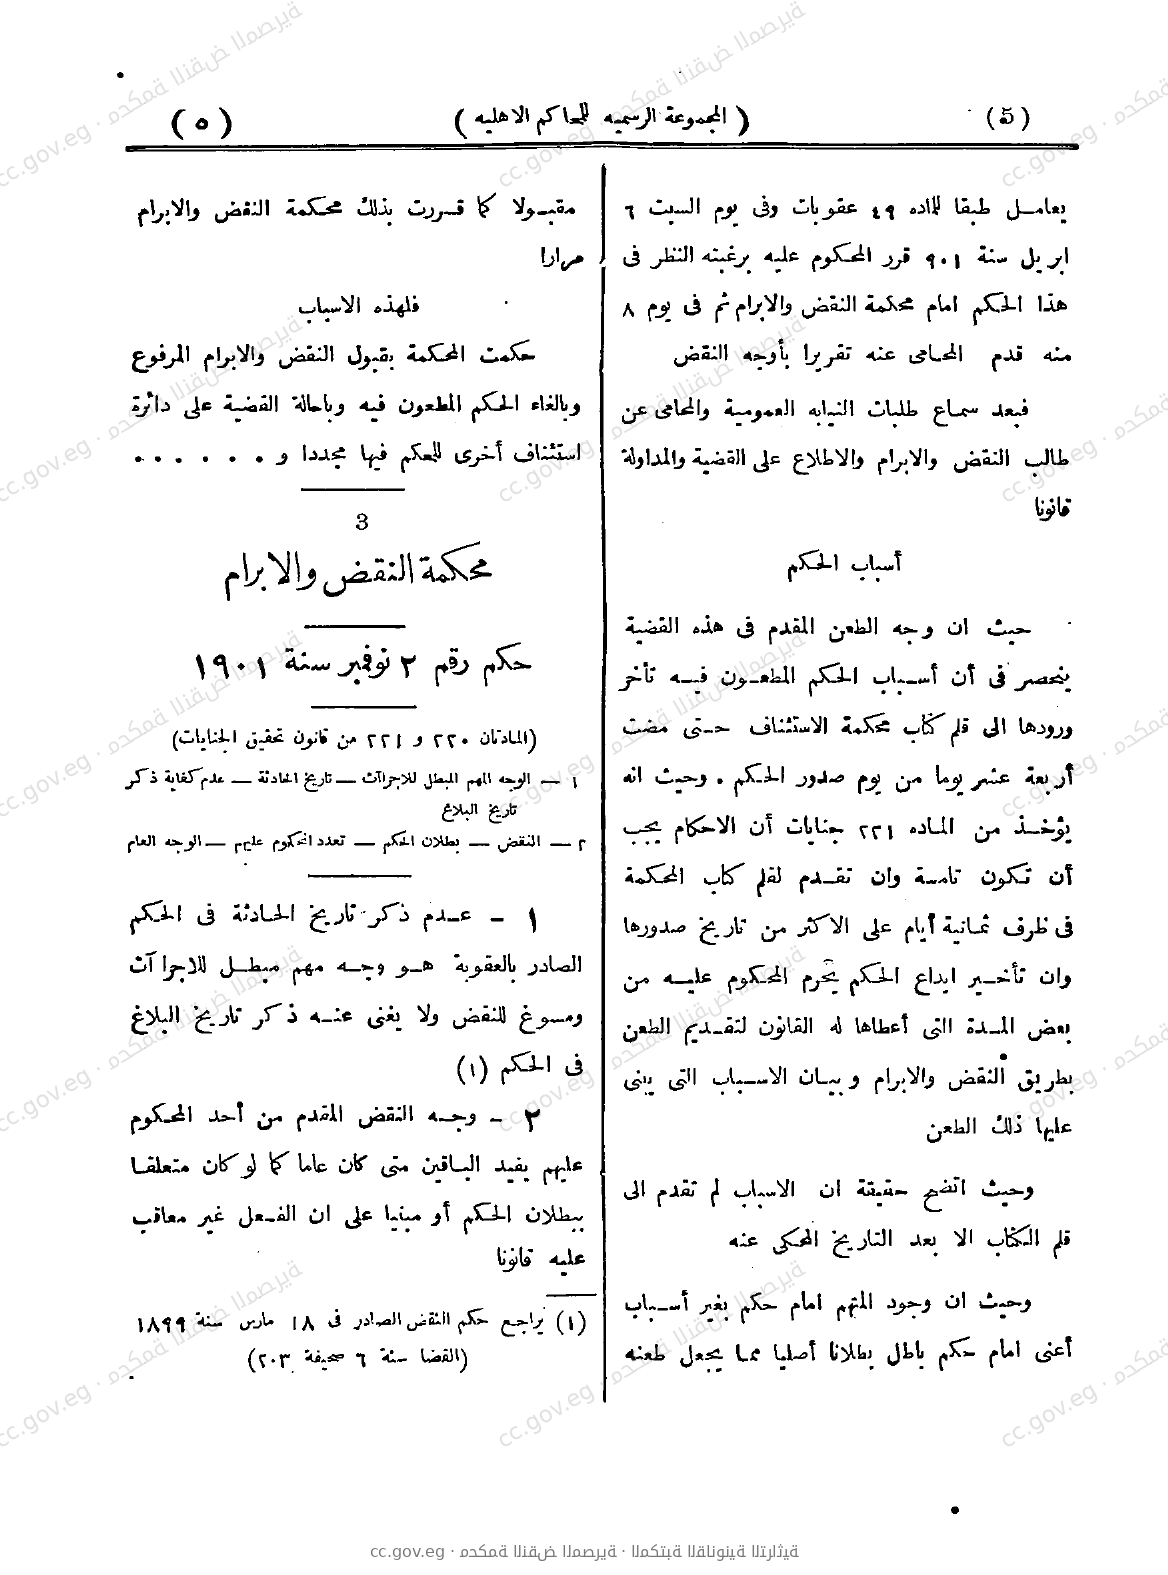 (5) ( المجموعة الرسميه للمحاكم الاهليه ) ( ٥ )
يعامـل طبقا للماده ٤٩ عقوبات وفى يوم السبت ٦
ابريل سنة ٩٠١ قرر المحكوم عليه برغبته النظر فى
هذا الحكم امام محكمة النقض والابرام ثم فى يوم ٨
منه قدم المحامى عنه تقريرا بأوجه النقض
فبعد سماع طلبات النيابه العمومية والمحامى عن
طالب النقض والابرام والاطلاع على القضية والمداولة
قانونا
أسباب الحكم
حيث ان وجه الطعن المقدم فى هذه القضية
ينحصر فى أن أسـباب الحكم المطعـون فيـه تأخر
ورودها الى قلم كتاب محكمة الاستئناف حـتى مضت
أربعة عشر يوما من يوم صدور الحكم . وحيث انه
يؤخـذ من الماده ٢٢١ جنايات أن الاحكام يجب
أن تكون تامـة وان تقـدم لقلم كتاب المحكمة
فى ظرف ثمانية أيام على الاكثر من تاريخ صدورها
وان تأخـير ايداع الحكم يحرم المحكوم عليـه من
بعض المـدة التى أعطاها له القانون لتقـديم الطعن
بطريق النقض والابرام وبيـان الاسـباب التى يبنى
عليها ذلك الطعن
وحيث اتضح حقيقة ان الاسـباب لم تقدم الى
قلم الكتاب الا بعد التاريخ المحكى عنه
وحيث ان وجود المتهم امام حكم بغير أسـباب
أعنى امام حكم باطل بطلانا أصليا مما يجعل طعنه
مقبـولا كما قـررت بذلك محكمة النقض والابرام
مرارا
فلهذه الاسباب
حكمت المحكمة بقبول النقض والابرام المرفوع
وبالغاء الحكم المطعون فيه وباحالة القضية على دائرة
استئناف أخرى للحكم فيها مجددا و . . . . . .
3
محكمة النقض والابرام
حكم رقم ٢ نوفمبر سنة ١٩٠١
(المادتان ٢٢٠ و ٢٢١ من قانون تحقيق الجنايات)
١ — الوجه المهم المبطل للاجراآت — تاريخ الحادثة — عدم كفاية ذكر
تاريخ البلاغ
٢ — النقض — بطلان الحكم — تعدد المحكوم عليهم — الوجه العام
١ - عـدم ذكر تاريخ الحادثة فى الحكم
الصادر بالعقوبة هـو وجـه مهم مبطـل للاجراآت
ومسوغ للنقض ولا يغنى عنـه ذكر تاريخ البلاغ
فى الحكم (١)
٢ - وجـه النقض المقدم من أحد المحكوم
عليهم يفيد البـاقين متى كان عاما كما لو كان متعلقـا
ببطلان الحكم أو مبنيا على ان الفـعل غير معاقب
عليه قانونا
(١) يراجـع حكم النقض الصادر فى ١٨ مارس سنة ١٨٩٩
(القضا سنة ٦ صحيفة ٢٠٣)
cc.gov.eg · محكمة النقض المصرية · المكتبة القانونية التراثية